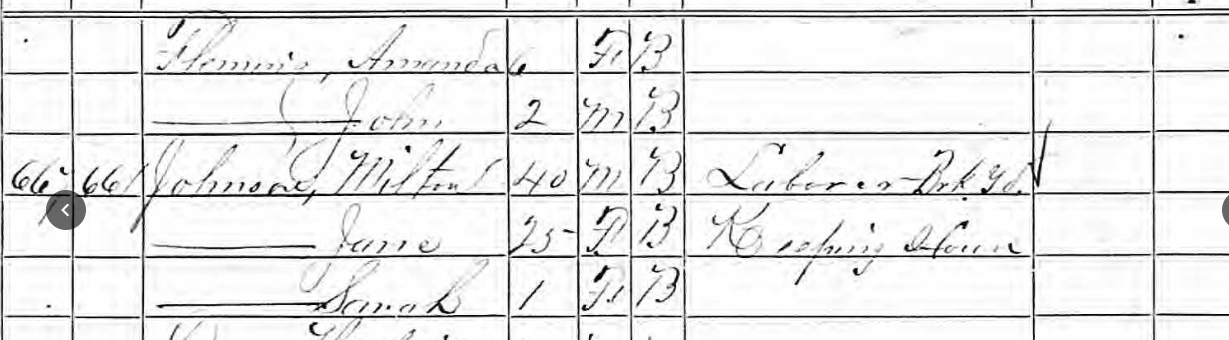 Fleming, Amanda 6 F B
John 2 M B
661 Johnson, Milton 40 M B Laborer Brk Yd.
Jane 25 F B Keeping House
Sarah 1 F B